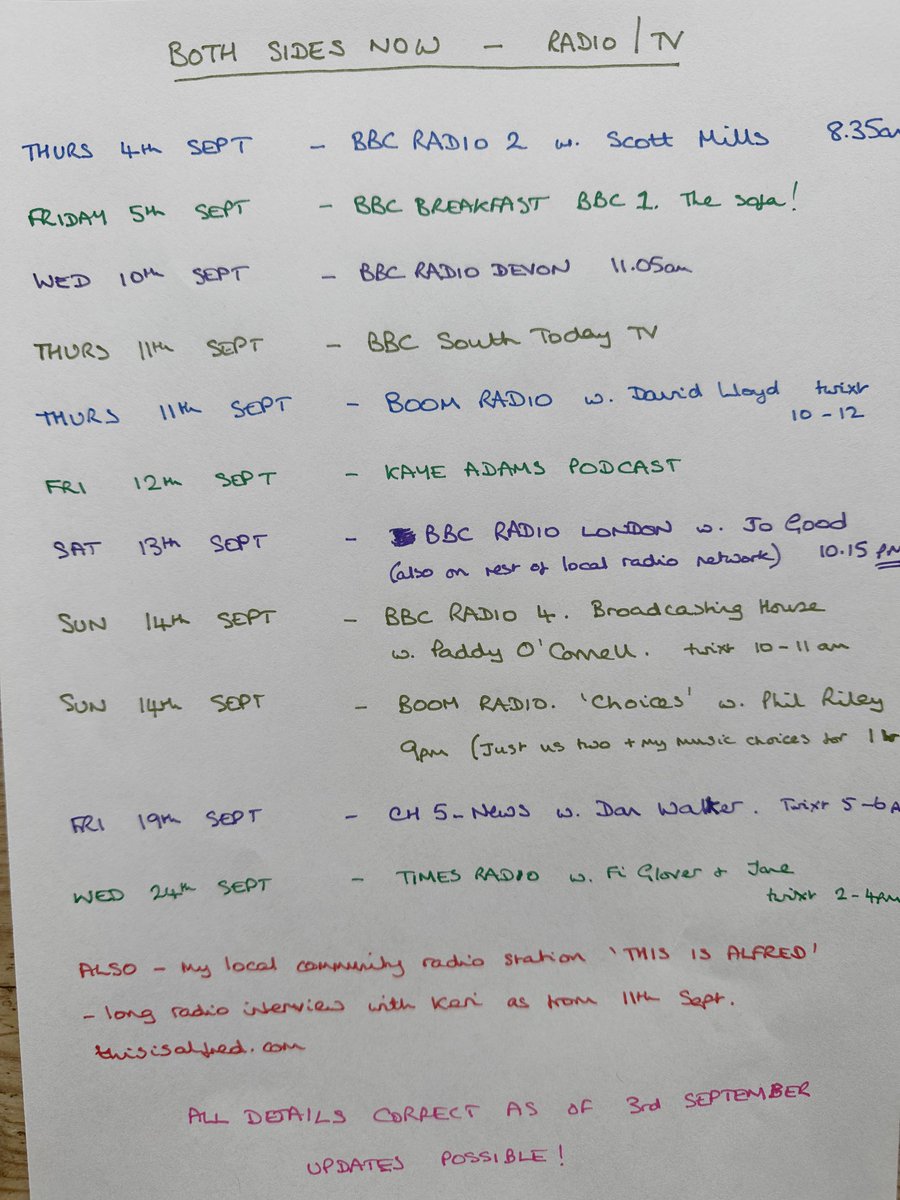 BOTH SIDES NOW - RADIO/TV
THURS 4th SEPT - BBC RADIO 2 w. Scott Mills 8.35am
FRIDAY 5th SEPT - BBC BREAKFAST BBC 1. The sofa!
WED 10th SEPT - BBC RADIO DEVON 11.05am
THURS 11th SEPT - BBC South Today TV
THURS 11th SEPT - BOOM RADIO w. David Lloyd twixt
10-12
FRI 12th SEPT - KAYE ADAMS PODCAST
SAT 13th SEPT - BBC RADIO LONDON w. Jo Good
(also on rest of local radio network) 10.15 PM
SUN 14th SEPT - BBC RADIO 4. Broadcasting House
w. Paddy O'Connell. twixt 10-11am
SUN 14th SEPT - BOOM RADIO. 'Choices' w. Phil Riley
9pm (Just us two + my music choices for 1 hr
FRI 19th SEPT - CH 5-News w. Dan Walker. Twixt 5-6
WED 24th SEPT - TIMES RADIO w. Fi Glover + Jane
twixt 2-4pm
ALSO - My local community radio station 'THIS IS ALFRED'
- long radio interview with Keri as from 11th Sept.
thisisalfred.com
ALL DETAILS CORRECT AS OF 3rd SEPTEMBER
UPDATES POSSIBLE!